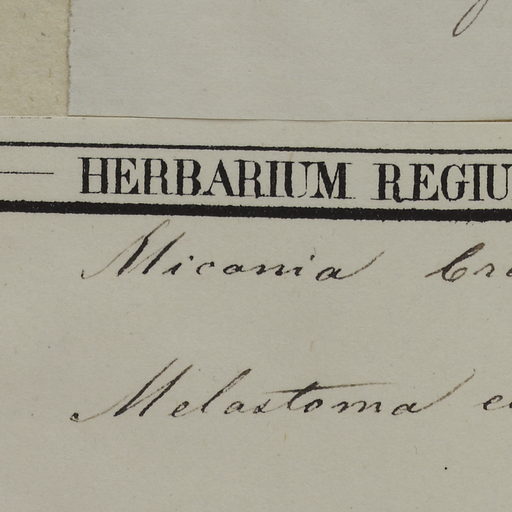 HERBARIUM REGIU
Micania Cra
Melastoma